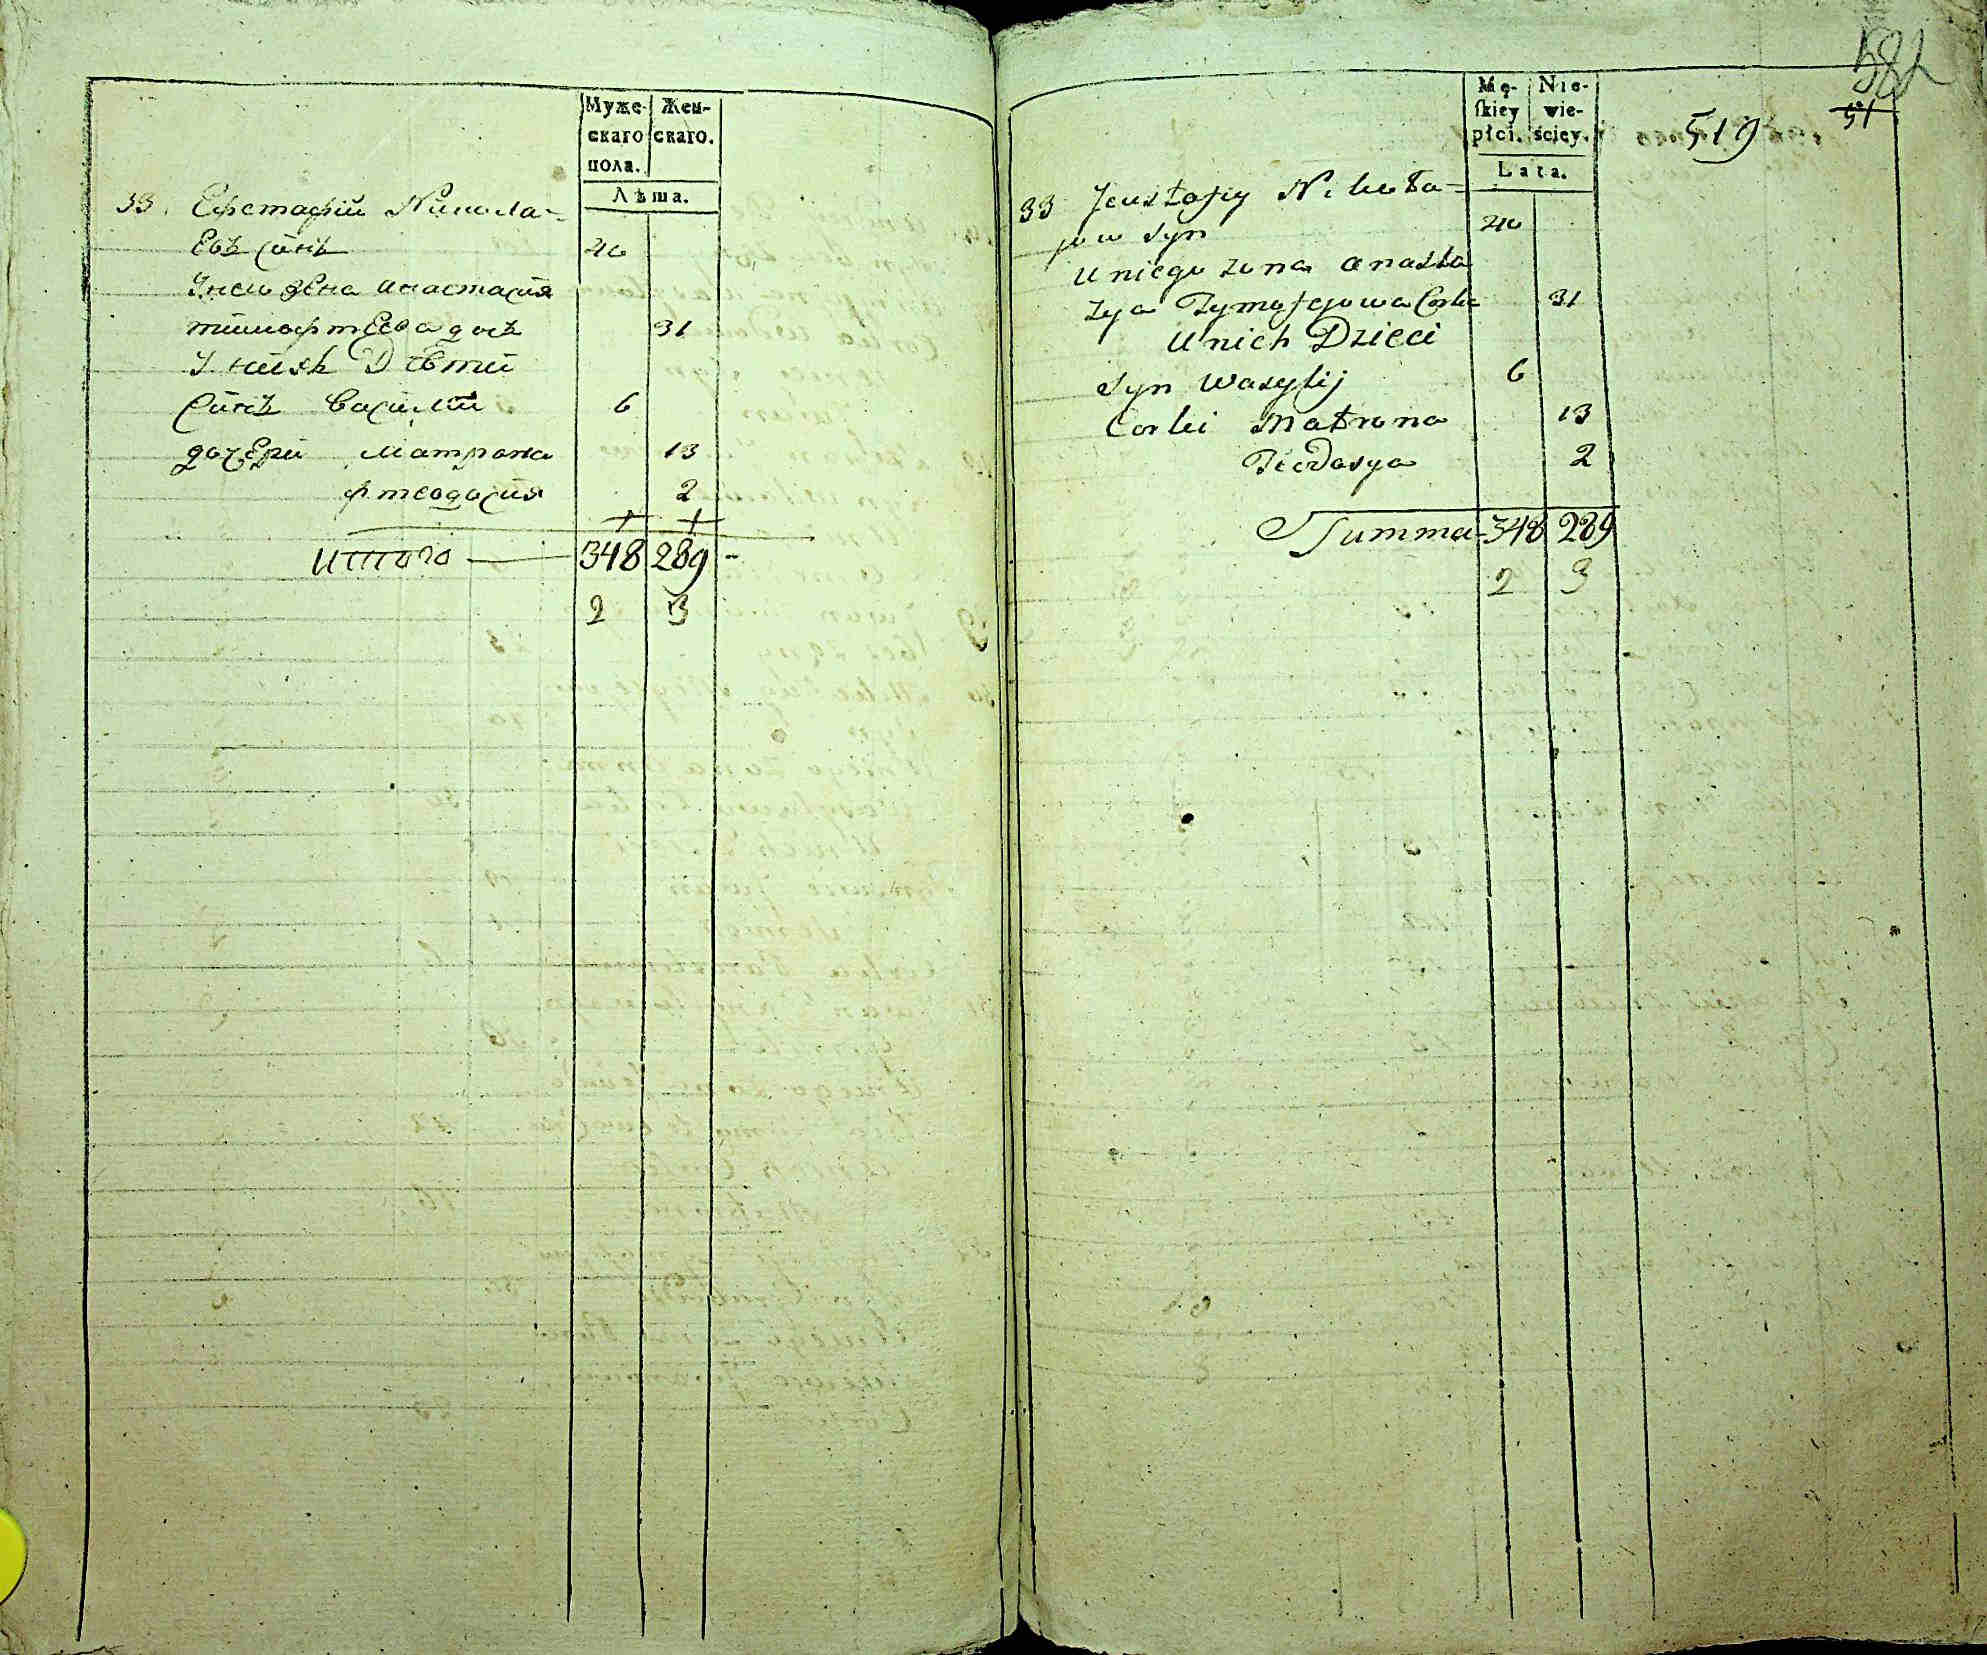 Муже- Жен-
скаго скаго.
пола.
Лѣта.
33. Ефстафий Никола-
Евъ сынъ 40
У него жена анастасия
тимофтеева дочь 31
У нихъ Дѣти
Сынъ василий 6
дочери матрона 13
фтеодосия 2
Итого 348 289
2 3
582
Mę- Nie-
skiey wie-
płci. ściey.
519
51
Lata.
33 Jeustafiy Nikoła=
jow syn 40
u niego żona anasta
zya Tymofejowa Corka 31
u nich Dzieci
syn wasylij 6
Corki Matrona 13
Teodosya 2
Summa 348 289
2 3